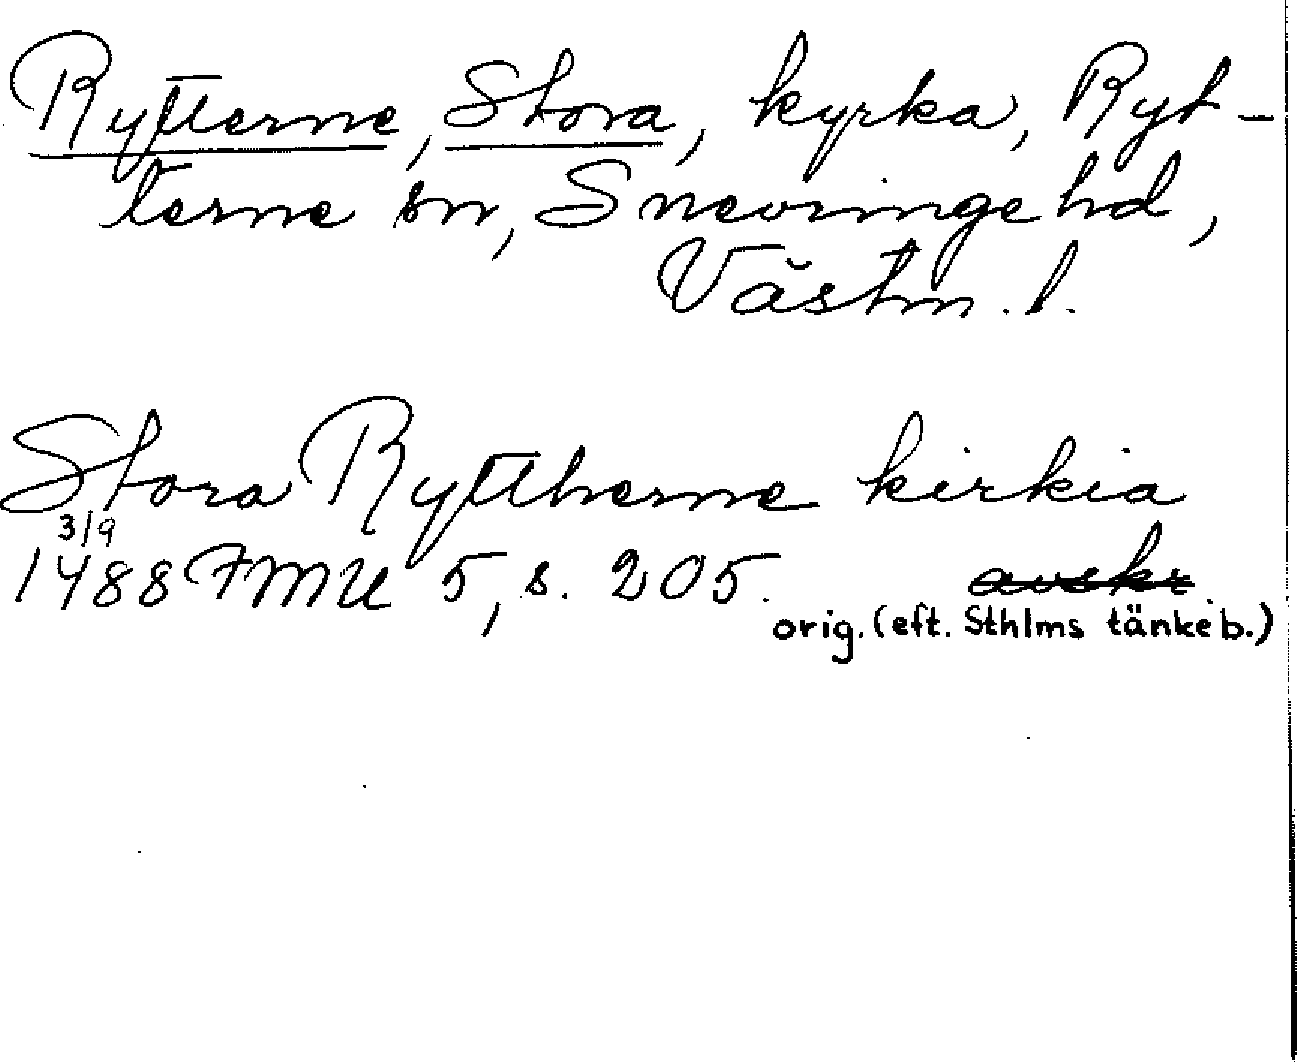 Rytterne, Stora, kyrka, Ryt-
terne sn, Snevringe hd,
Västm. l.
Stora Ryttherne kirkia
3/9
1488 FMU 5, s. 205. avskr.
orig. (eft. Sthlms tänkeb.)